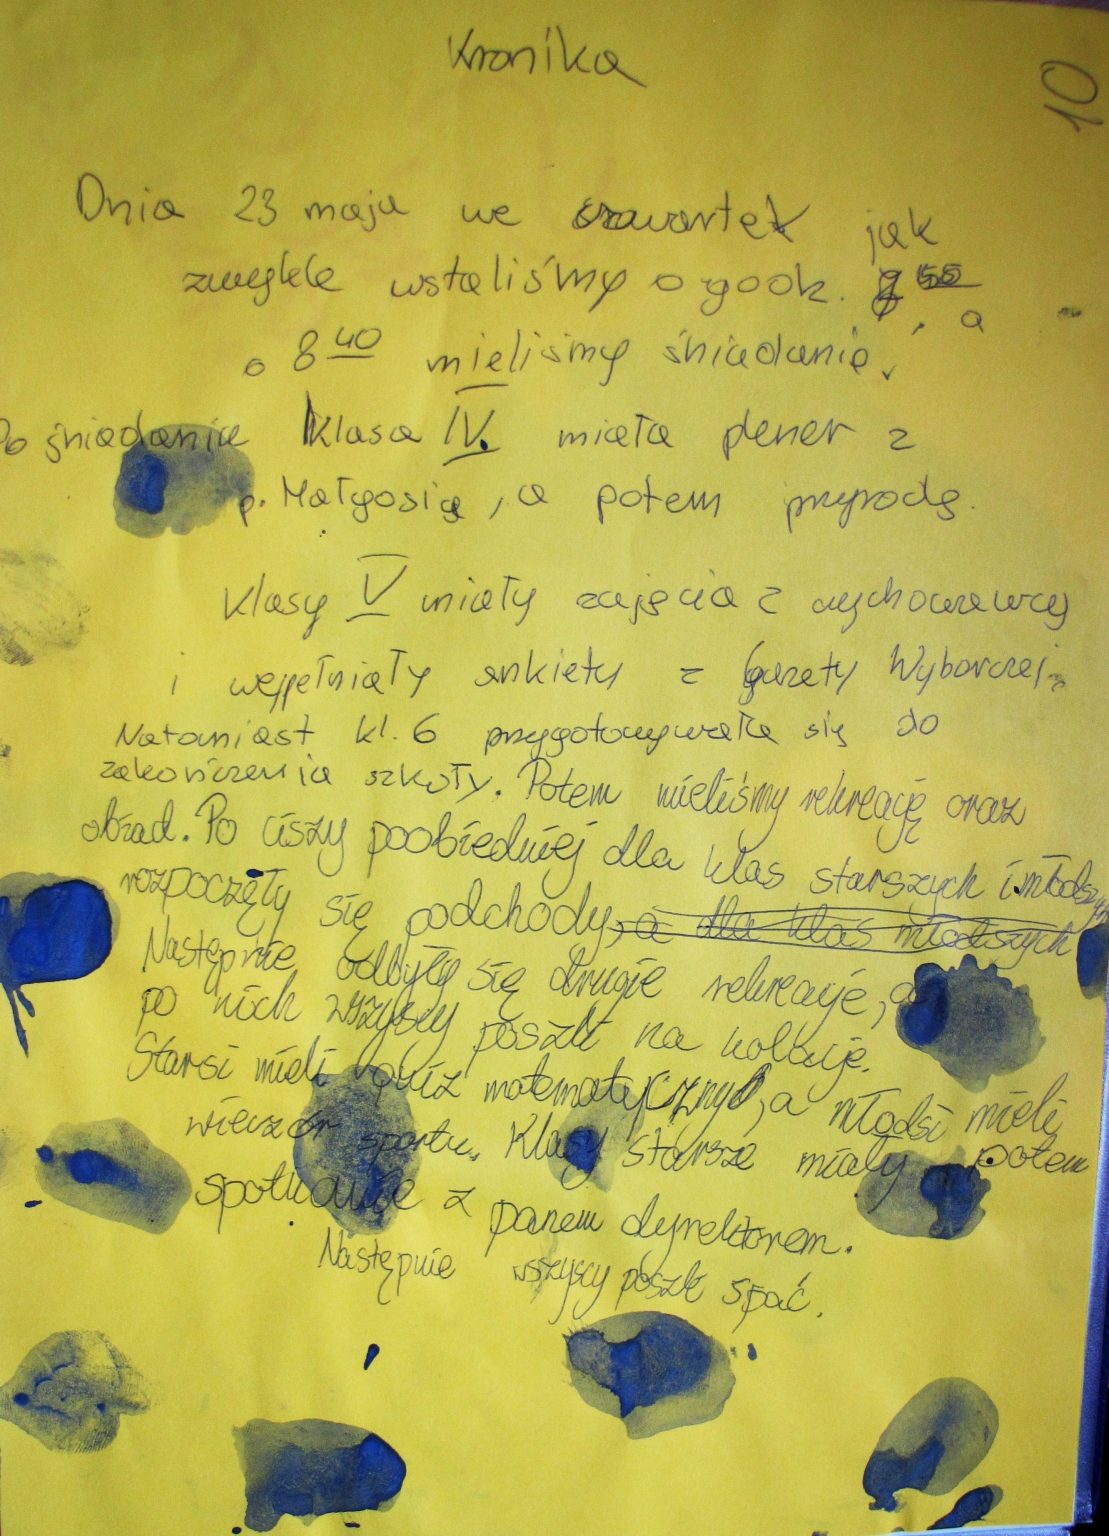 Kronika
10
Dnia 23 maja we czwartek jak
zwykle wstaliśmy o godz. 50, a
o 8 40 mieliśmy śniadanie.
Po śniadaniu klasa IV. miała plener z
p. Małgosią, a potem przyrodę.
Klasy V miały zajęcia z wychowawcą
i wypełniały ankiety z Gazety Wyborczej.
Natomiast kl. 6 przygotowywała się do
zakończenia szkoły. Potem mieliśmy rekreację oraz
obiad. Po ciszy poobiedniej dla klas starszych i młodszych
rozpoczęły się podchody, a dla klas młodszych
Następnie odbyły się drugie rekreacje, a
po nich wszyscy poszli na kolację.
Starsi mieli quiz matematyczny, a młodsi mieli
wieczór sportu. Klasy starsze miały potem
spotkanie z panem dyrektorem.
Następnie wszyscy poszli spać.